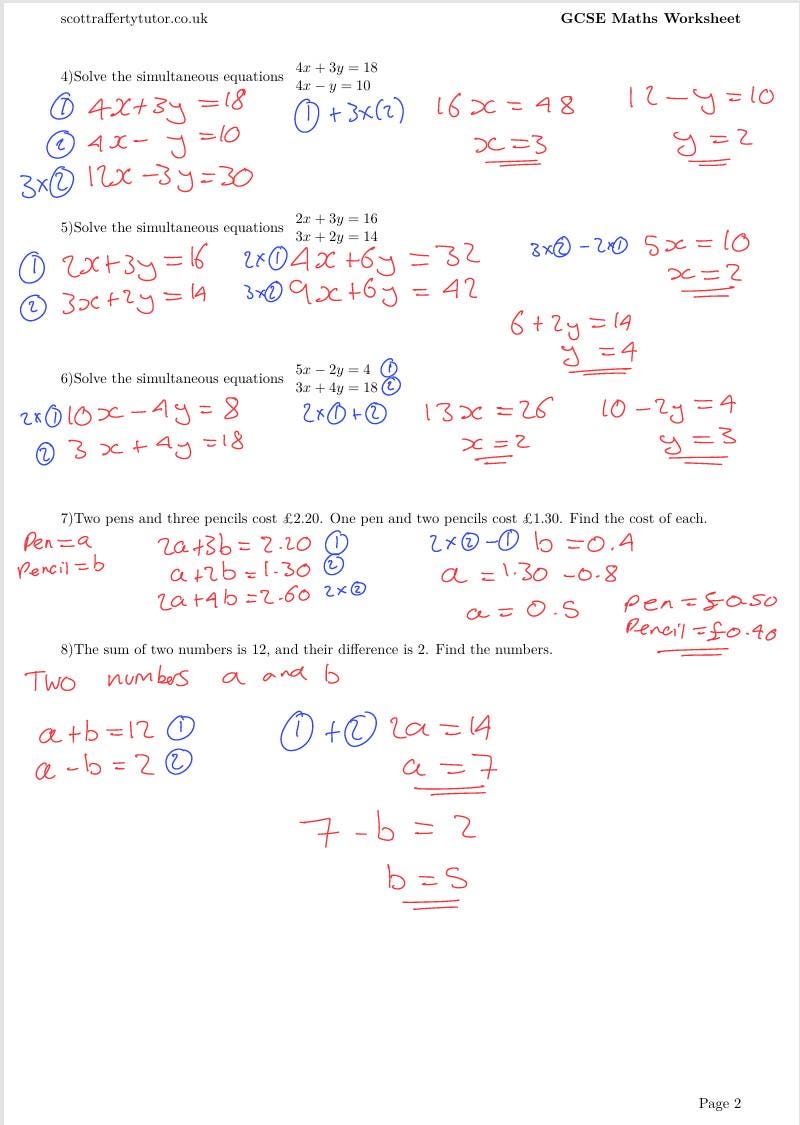 scottraffertytutor.co.uk GCSE Maths Worksheet
4)Solve the simultaneous equations 4x + 3y = 18
4x − y = 10
① 4x+3y =18 ① + 3x(2) 16x = 48 12 − y = 10
② 4x − y =10 x = 3 y = 2
3x② 12x −3y = 30
5)Solve the simultaneous equations 2x + 3y = 16
3x + 2y = 14
① 2x+3y = 16 2x① 4x +6y = 32 3x② − 2x① 5x = 10
② 3x+2y = 14 3x② 9x+6y = 42 x = 2
6 + 2y = 14
y = 4
6)Solve the simultaneous equations 5x − 2y = 4 ①
3x + 4y = 18 ②
2x① 10x − 4y = 8 2x① + ② 13x = 26 10 − 2y = 4
② 3x + 4y = 18 x = 2 y = 3
7)Two pens and three pencils cost £2.20. One pen and two pencils cost £1.30. Find the cost of each.
Pen = a 2a+3b = 2.20 ① 2x② − ① b = 0.4
Pencil = b a+2b = 1.30 ② a = 1.30 − 0.8
2a+4b = 2.60 2x② a = 0.5 pen = £0.50
Pencil = £0.40
8)The sum of two numbers is 12, and their difference is 2. Find the numbers.
Two numbers a and b
a+b = 12 ① ① + ② 2a = 14
a − b = 2 ② a = 7
7 − b = 2
b = 5
Page 2